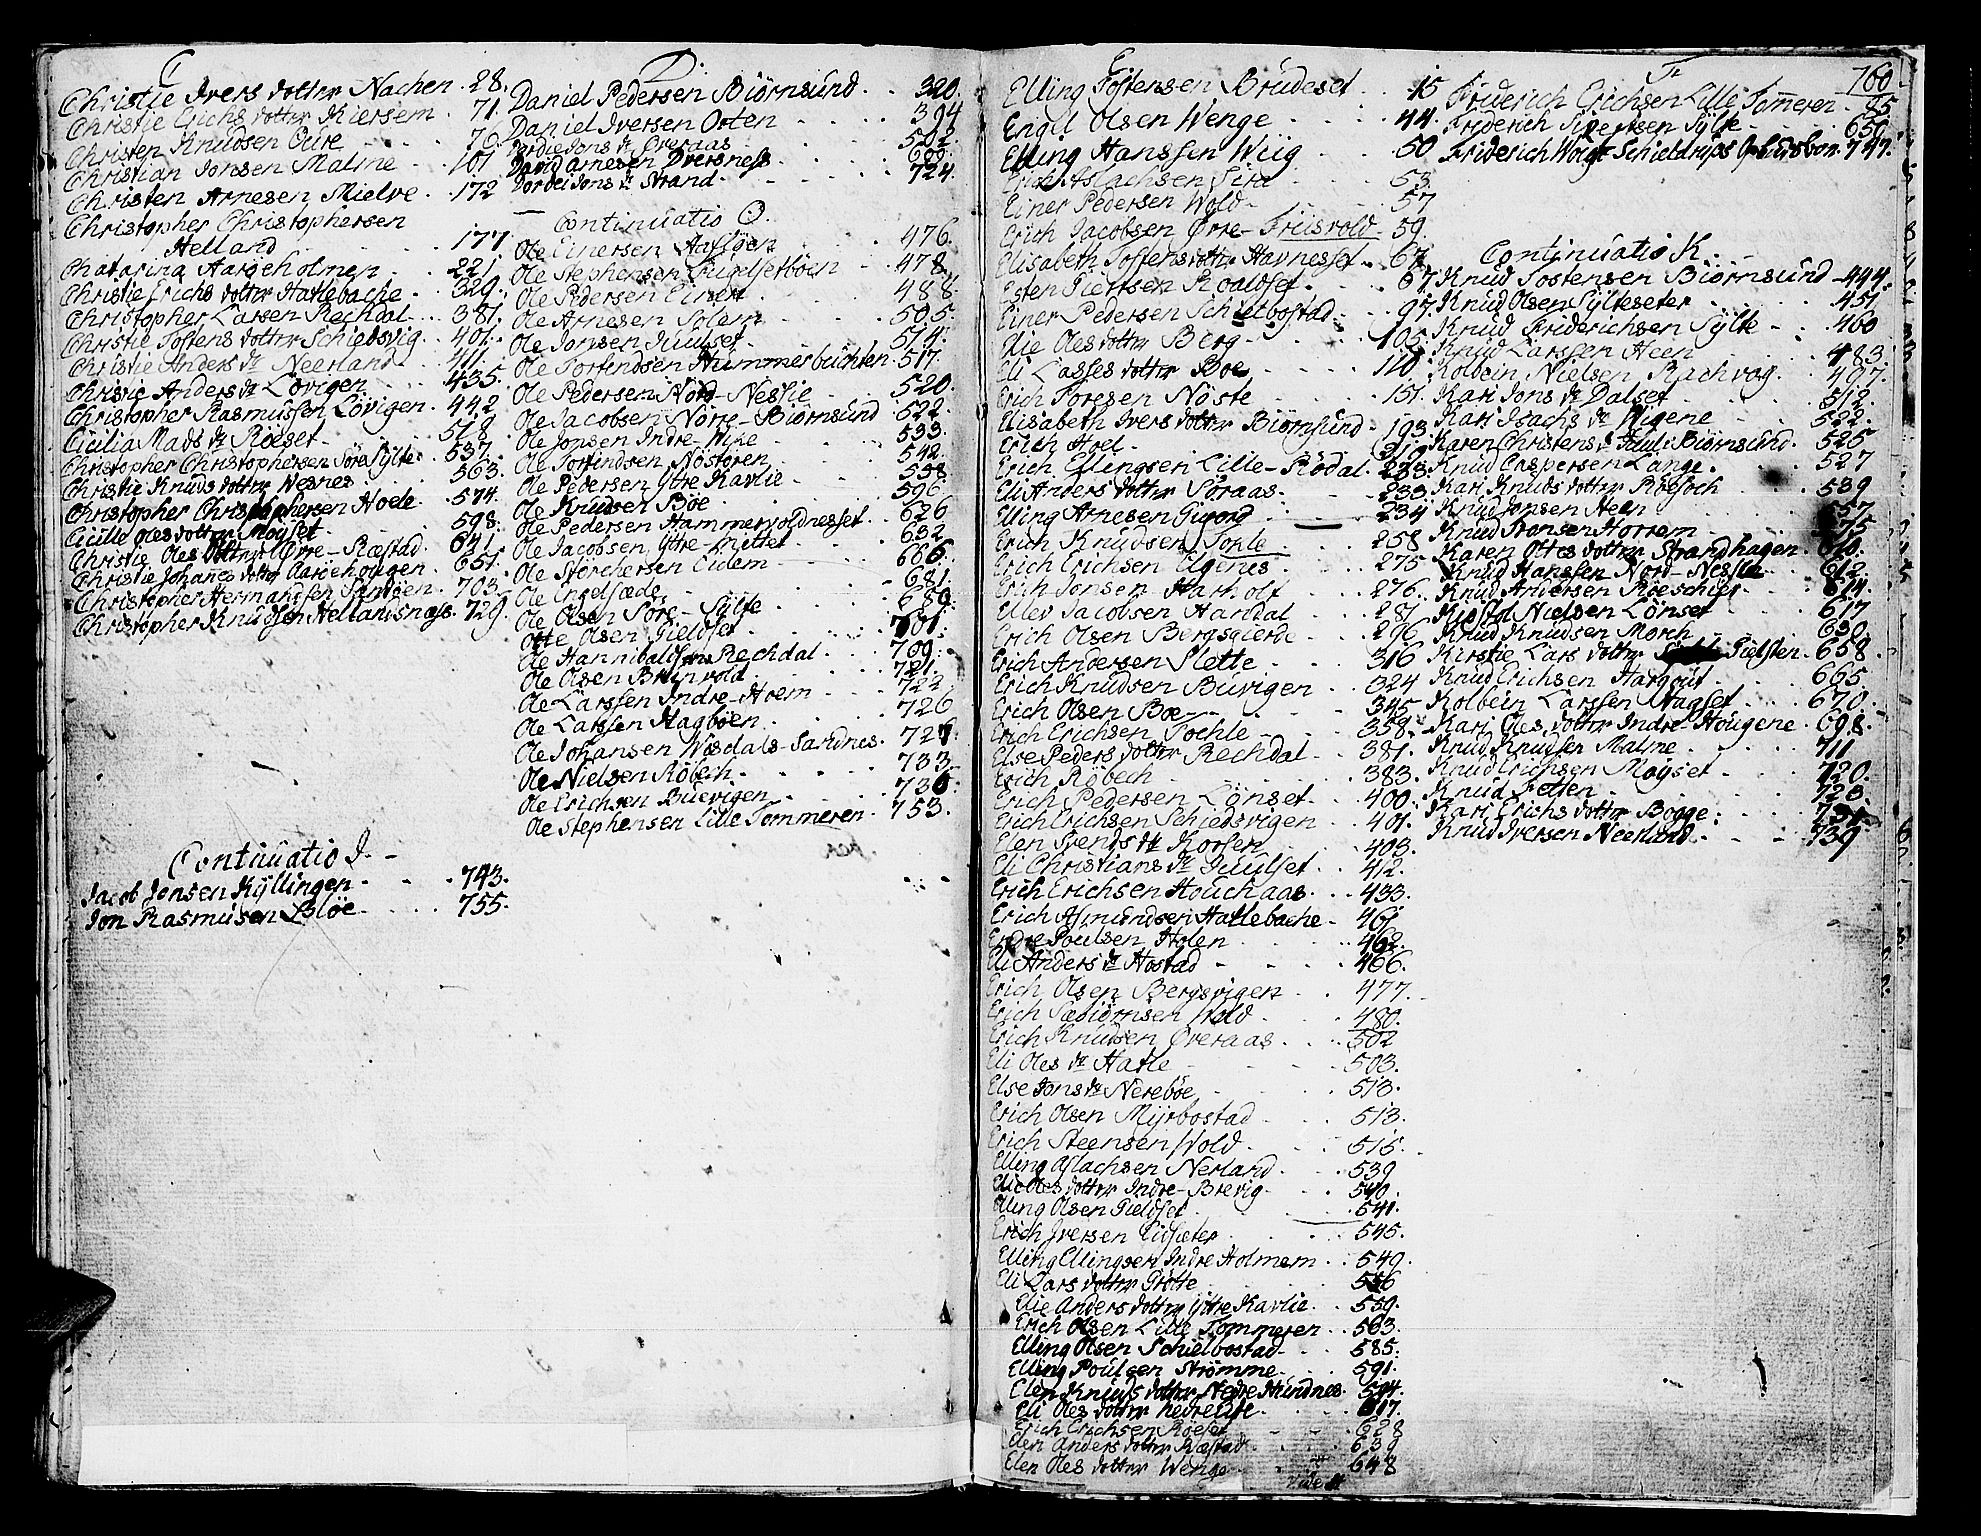 C
Christie Ivers dotter Nachen . 28.
Christie Erichs dotter Kiersem . 71.
Christen Knudsen Oure 70.
Christian Jonsen Malme 101
Christen Arnesen Mielve 172
Christopher Christophersen
Helland 177
Chatarina Aarøeholmen 221
Christie Erichs dotter Hatlebache 329.
Christopher Larsen Rechdal 381.
Christie Tostens dotter Schiedsvig 401.
Christie Anders dr Neerland 411.
Christie Anders dr Lövigen 435.
Christopher Rasmussen Lövigen 442
Cicilia Mads dr Röeset 518
Christopher Christophersen Söre Sylte 537.
Christie Knuds dotter Nesnes 563.
Christopher Christophersen Hoele 574.
Cicille Oles dotter Möyset 598.
Christie Oles dotter Øvre-Ræstad 641
Christie Johanes dotter Aaröehougen 651.
Christopher Hermandsen Sandöen 703.
Christopher Knudsen Hellandsnæs 729.
Continuatio J.
Jacob Jonsen Kyllingen 743.
Jon Rasmusen Bløe 755.
D.
Daniel Pedersen Biörnsund 320.
Daniel Iversen Orten 394
Dordie Jons dr Øveraas 502.
David Arnesen Dversness 600.
Dordei Jons dr Strand 724.
Continuatio O.
Ole Einersen Aasföen 476.
Ole Stephensen Engelsetböen 478
Ole Pedersen Einen 488.
Ole Arnesen Solem 505
Ole Jonsen Huulset 514.
Ole Torfendsen Hammerbuchten 517
Ole Pedersen Nord-Neslie 520.
Ole Jacobsen Nörre-Biornsund 522.
Ole Jonsen Indre-Wiie 533.
Ole Torfindsen Nöstoren 542.
Ole Pedersen Ytre Kavlie 558
Ole Knudsen Böe 596.
Ole Pedersen Hammervoldnesset 626
Ole Jacobsen Ytre-Mittet 632
Ole Storchersen Eidem 666.
Ole Engelsæde 681.
Ole Olsen Söre-Sylte 680.
Otte Olsen Gieldset 701.
Ole Hannibalsen Rechdal 709.
Ole Olsen Brunvold 721.
Ole Larssen Indre-Hoem 722
Ole Larssen Hagböen 726
Ole Johansen Nisdals-Sandnes 727.
Ole Nielsen Röbech 733.
Ole Erichsen Buevigen 736.
Ole Stephensen Lille Tommeren 753.
E
Elling Tostensen Brudeset 15
Engel Olsen Wenge 44.
Elling Hanssen Wiig 50
Erich Aslachsen Sira 53.
Einer Pedersen Wold 57
Erich Jacobsen Ørre-Friisvold 59.
Elisabeth Tostens dotter Havnesset 67.
Esten Siertsen Roaldset 67.
Einer Pedersen Schielbostad 97.
Elie Oles dotter Berg 105.
Eli Lasses dotter Boe 110.
Erich Toresen Nöste 151.
Elisabeth Ivers dotter Biörnsund 193
Erich Hoel 219
Erich Ellingsen Lille-Rödal 223.
Eli Anders dotter Söraas 233.
Elling Arnesen Gujord 234
Erich Knudsen Tokle 258
Erich Erichsen Elgenes 275
Erich Jonsen Harholt 276.
Ellev Jacobsen Handal 281
Erich Olsen Bergsgierde 296
Erich Andersen Slette 316
Erich Knudsen Buvigen 324
Erich Olsen Boe 345
Erich Erichsen Tochle 359.
Else Peders dotter Rechdal 381.
Erich Röbech 383.
Erich Pedersen Lönset 400.
Erich Erichsen Schiedsvigen 401.
Elen Svends dr Korsen 403.
Eli Christians dr Huulset 412.
Erich Erichsen Houchaas 433.
Erich Asmundsen Hatlebache 461
Endre Poulsen Holen 462.
Eli Anders dr Hostad 466.
Erich Olsen Bergsvigen 477.
Erich Sæbiörnsen Wold 480.
Erich Knudsen Øveraas 502
Eli Oles dr Hatle 503.
Else Jons dr Nereböe 513.
Erich Olsen Myrbostad 513.
Erich Steensen Wold 515.
Elling Aslachsen Nerland 539
Elie Oles dotter Indre-Brevig 540.
Elling Olsen Gieldset 541.
Erich Iversen Eidsæter 545.
Elling Ellingsen Indre Holmem 549.
Eli Lars dotter Grötte 556
Elie Anders dotter Ytre Kavlie 559.
Erich Olsen Lille Tommeren 563.
Elling Olsen Schielbostad 585.
Elling Poulsen Strömme 591.
Elen Knuds dotter Nedre Mundnes 594.
Eli Oles dotter 617.
Erich Erichsen Röeset 628
Elen Anders dotter Ræstad 639
Elen Oles dotter Wenge 648
Vide
F. 760.
Friderich Erichsen Lille Tommeren 85
Friderich Sivertsen Sylte 656.
Friderich Woigt Schieldrups 747.
Continuatio K.
Knud Tostensen Biörnsund 444.
Knud Olsen Sylteseter 451
Knud Friderichsen Sylte 460
Knud Larssen Heen 483.
Kolbein Nielsen Bachvog 497.
Kari Jons dr Dalset 512
Kari Isachs dr Wigene 522.
Karen Christens dr Biörnsund 525
Knud Caspersen Lange 527
Kari Knuds dotter Röesoch 539
Knud Jonsen Heen 557
Knud Ivorsen Horrem 575
Karen Ottes dotter Strandhagen 610.
Knud Hanssen Nord-Neslie 612.
Knud Andersen Röeschift 614.
Kistol Nielsen Lönset 617
Knud Knudsen Morch 630.
Kirstie Lars dotter Gielsten 658.
Knud Erichsen Hargout 665
Kolbein Larssen Hagset 670.
Kari Oles dotter Indre-Hougene 698.
Knud Knudsen Malme 711
Knud Erichsen Möyset 720.
Knud Felten 728
Kari Erichs dotter Bogge 731.
Knud Iversen Neerland 739